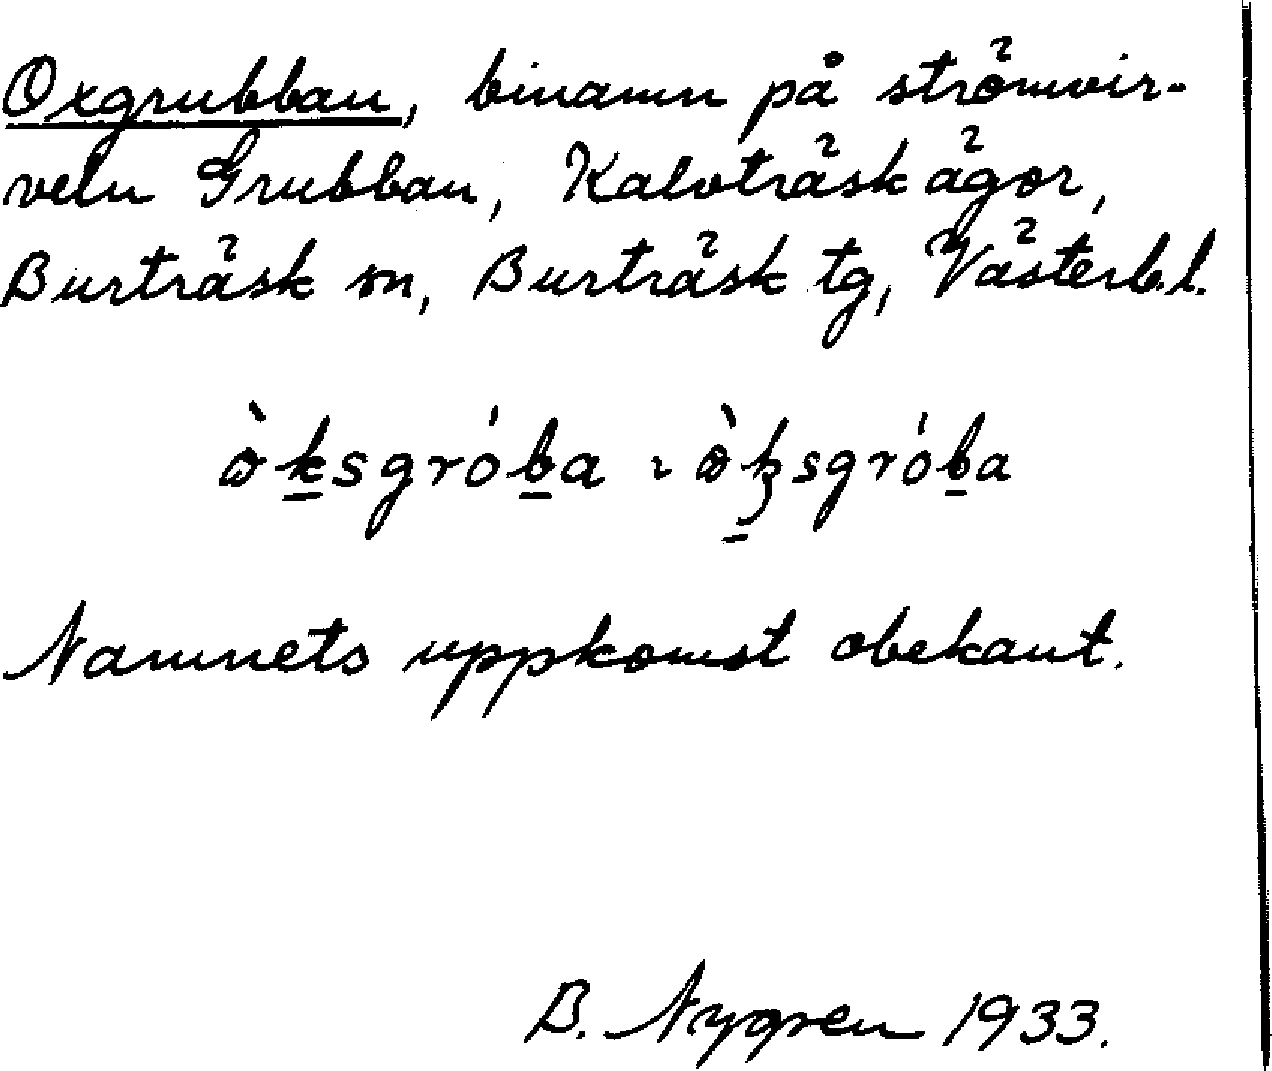 Oxgrubban, binamn på strömvir-
veln Grubban, Kalvträsk ägor,
Burträsk sn, Burträsk tg, Västerb.l.
Namnets uppkomst obekant.
B. Nygren 1933.